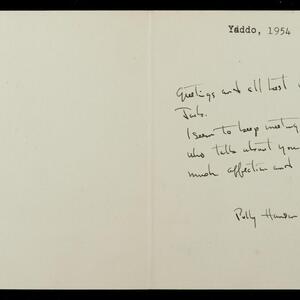 Yaddo, 1954
Greetings and all best
I seem to keep meeting
who talks about you
much affection and
Polly Hanson